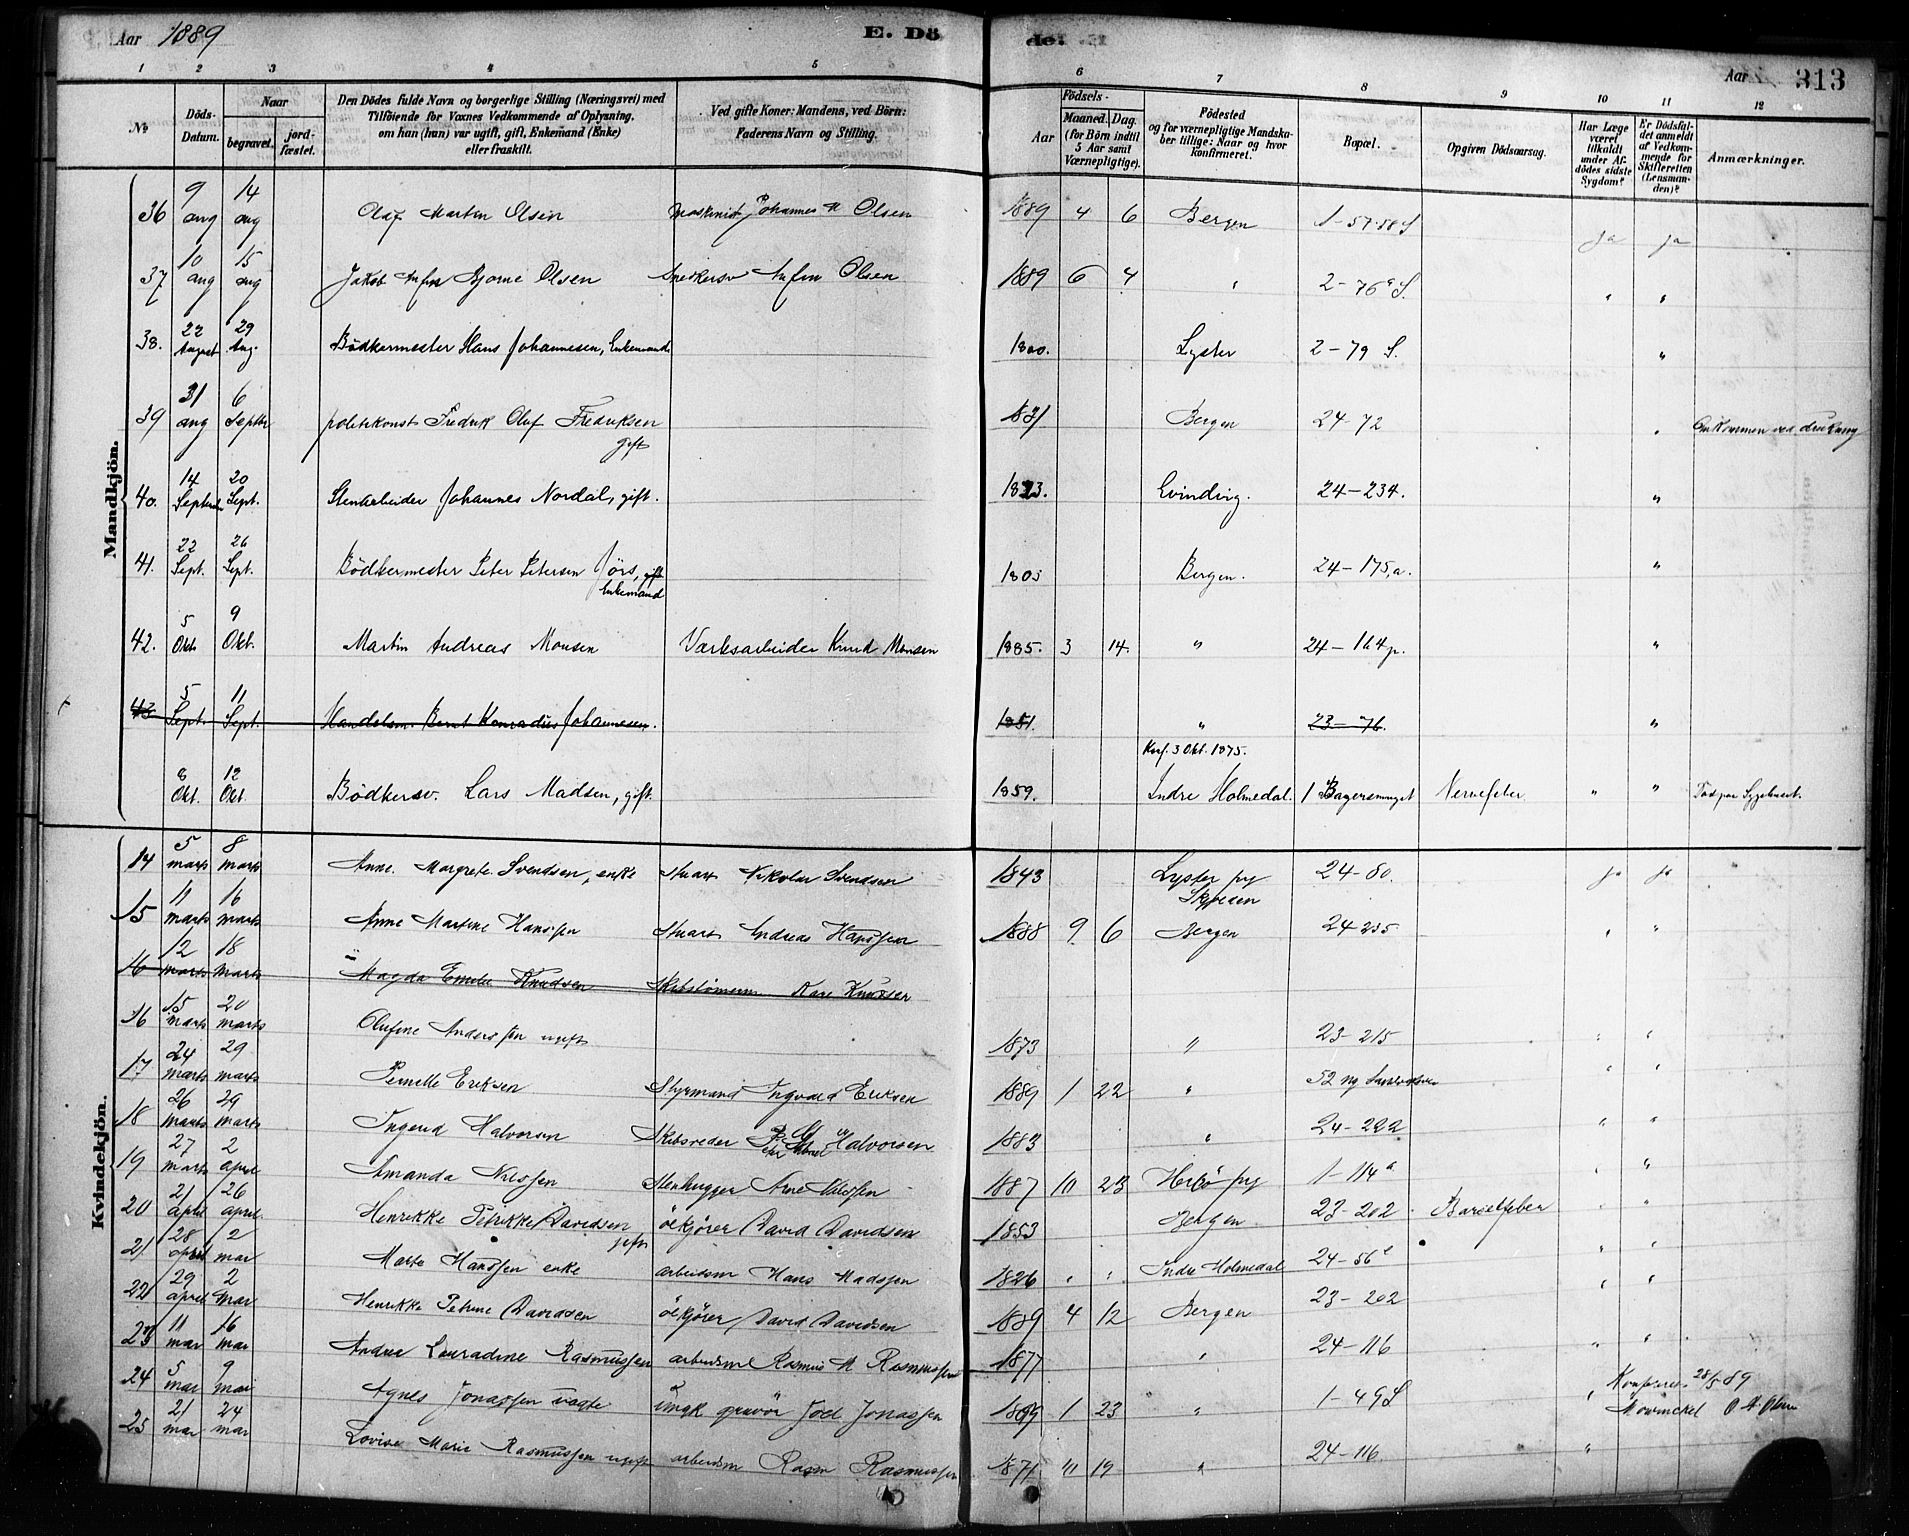 Aar 1889 E. Dö de. Aar 313
1 2 3 4 5 6 7 8 9 10 11 12
No Döds-Datum. Naar begravet. jordfæstet. Den Dödes fulde Navn og borgerlige Stilling (Næringsvei) med Tilföiende for Voxnes Vedkommende af Oplysning, om han (hun) var ugift, gift, Enkemand (Enke) eller fraskilt. Ved gifte Koner: Mandens, ved Börn: Faderens Navn og Stilling. Födsels- Aar Maaned. Dag. (for Börn indtil 5 Aar samt Værnepligtige). Födested og for værnepligtige Mandskaber tillige: Naar og hvor konfirmeret. Bopæl. Opgiven Dödsaarsag. Har Læge været tilkaldt under Afdödes sidste Sygdom? Er Dödsfaldet anmeldt af Vedkommende for Skifteretten (Lensmanden)? Anmærkninger.
Mandkjön.
36 9 aug 14 aug Olaf Martin Olsen Maskinist Johannes M Olsen 1889 4 6 Bergen 1-57-58 S ja ja
37 10 aug 15 aug Jakob Anfin Bjorne Olsen Anfin Olsen 1889 6 4 " 2-76a S. " "
38. 22 August 29 Aug. Bödkermester Hans Johannesen, Enkemand 1800. Lyster 2-79 S. "
39 31 aug 6 Septbr politikonst Fredrik Oluf Fredriksen gift 1831 Bergen 24-72 " Omkommen ved drukning
40. 14 September 20 Sept. Stenarbeider Johannes Nordal, gift. 1823. Evindvig. 24-234. "
41. 22 Sept. 26 Sept. Bödkermester Peter Petersen Jörs, gift Enkemand 1805 Bergen. 24-175,a. "
42. 5 Okt. 9 Okt. Martin Andreas Monsen Værksarbeider Knud Monsen 1885. 3 14. " 24-164p. "
43 5 Sept. 11 Sept. Handelsm. Bernt Konradus Johannesen. 1851. " 23-76. "
8 Okt. 12 Okt. Bödkersv. Lars Madsen, gift. 1859. Konf. 3 Okt. 1875. Indre Holmedal. 1 Bagersmuget Nervefeber " " Död paa Sygehuset.
Kvindekjön.
14 5 marts 8 marts Anne Margrete Svendsen, enke Stuart Nikolai Svendsen 1843 Lyster prg 24-80. ja ja
15 11 marts 16 marts Anne Martine Hanssen Stuart Andreas Hanssen 1888 9 6 Bergen 24 235 " "
16 12 marts 18 marts Magda Emilie Knudsen Skibstömmerm Kare Knudsen
16 15 marts 20 marts Olufine Anderssen ugift 1873 " 23-215 " "
17 24 marts 29 marts Pernille Eriksen Styrmand Ingvald Eriksen 1889 1 22 " 52 ny " "
18 26 marts 29 marts Ingerid Halvorsen Skibsreder Halvorsen 1883 " 24-222 " "
19 27 marts 2 april Amanda Nilssen Stenhugger Arne Nilssen 1887 11 23 Herlö prg 1-114a " "
20 21 april 26 april Henrikke Petrikke Davidsen gift ölkjörer David Davidsen 1853 Bergen 23-202 Barselfeber " "
21 28 april 2 mai Marte Hanssen enke arbeidsm Hans Madssen 1826 " " Indre Holmedal 24-56 " "
22 29 april 2 mai Henrikke Petrine Davidsen ölkjörer David Davidsen 1889 4 12 Bergen 23-202 " "
23 11 mai 16 mai Andrea Lauradine Rasmussen arbeidsm Rasmus M Rasmussen 1877 " 24-116 " "
24 5 mai 9 mai Agnes Jonassen uægte Ungk gravör Joel Jonassen 1889 1 23 " 1-49 S " 28/5 89 Mowinckel O A Olsen
25 21 mai 24 mai Lovise Marie Rasmussen ugift arbeidsm Rasm Rasmussen 1871 11 19 " 24-116 "